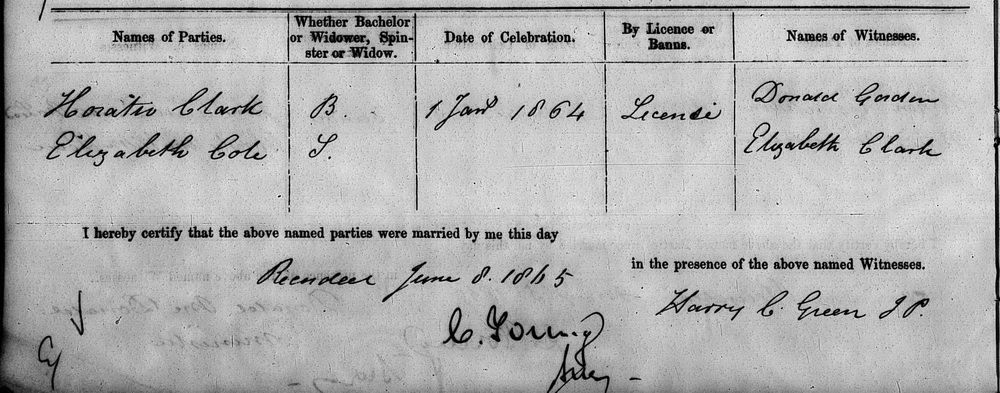 Names of Parties. Whether Bachelor or Widower, Spinster or Widow. Date of Celebration. By Licence or Banns. Names of Witnesses.
Horatio Clark B. 1 Jany 1864 License Donald Gordon
Elizabeth Cole S. Elizabeth Clark
I hereby certify that the above named parties were married by me this day
in the presence of the above named Witnesses.
June 8. 1865
Harry C Green J P.
C. Young